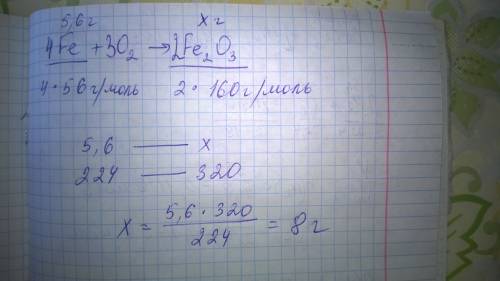 5,6 г x г
4Fe + 3O₂ → 2Fe₂O₃
4·56 г/моль 2·160 г/моль
5,6 — x
224 — 320
x = 5,6·320 / 224 = 8 г